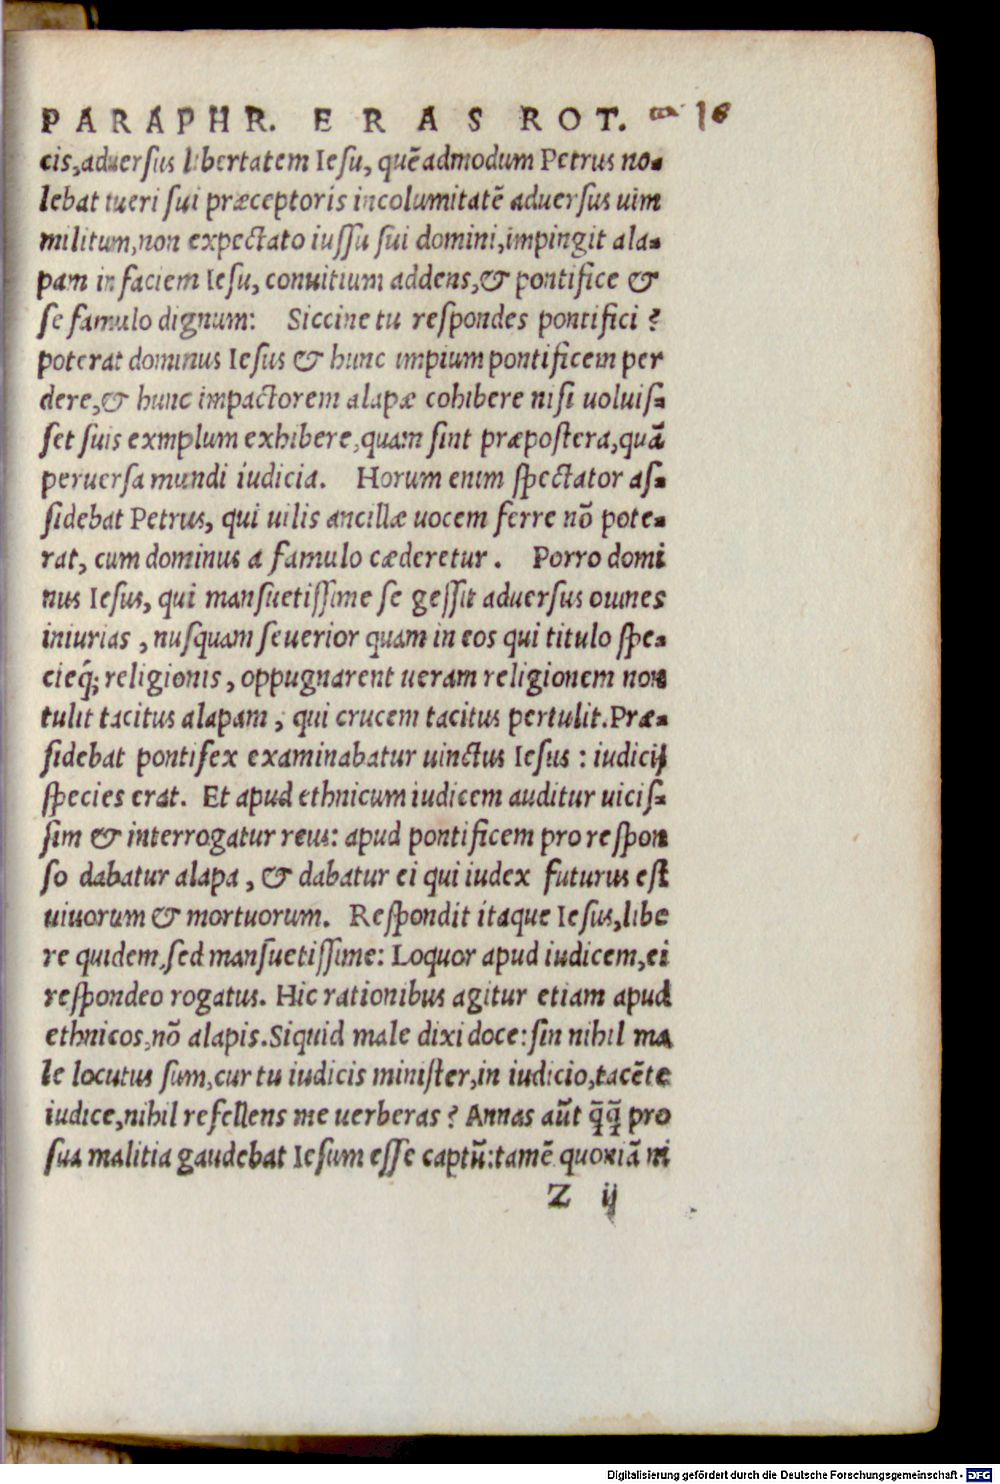 PARAPHR. ERAS ROT. 16
cis, aduersus libertatem Iesu, quẽadmodum Petrus no-
lebat tueri sui præceptoris incolumitatẽ aduersus uim
militum, non expectato iussu sui domini, impingit ala-
pam in faciem Iesu, conuitium addens, & pontifice &
se famulo dignum: Siccine tu respondes pontifici?
poterat dominus Iesus & hunc impium pontificem per
dere, & hunc impactorem alapæ cohibere nisi uoluis-
set suis exmplum exhibere, quam sint præpostera, quã
peruersa mundi iudicia. Horum enim spectator as-
sidebat Petrus, qui uilis ancillæ uocem ferre nõ pote-
rat, cum dominus a famulo cæderetur. Porro domi
nus Iesus, qui mansuetissime se gessit aduersus oumes
iniurias, nusquam seuerior quam in eos qui titulo spe-
cieq́; religionis, oppugnarent ueram religionem non
tulit tacitus alapam, qui crucem tacitus pertulit. Præ-
sidebat pontifex examinabatur uinctus Iesus: iudicij
species erat. Et apud ethnicum iudicem auditur uicis-
sim & interrogatur reus: apud pontificem pro respon
so dabatur alapa, & dabatur ei qui iudex futurus est
uiuorum & mortuorum. Respondit itaque Iesus, libe
re quidem, sed mansuetissime: Loquor apud iudicem, ei
respondeo rogatus. Hic rationibus agitur etiam apud
ethnicos, nõ alapis. Siquid male dixi doce: sin nihil ma
le locutus sum, cur tu iudicis minister, in iudicio, tacẽte
iudice, nihil refellens me uerberas? Annas aũt q̃q̃ pro
sua malitia gaudebat Iesum esse captũ: tamẽ quoniã ni
Z ij
Digitalisierung gefördert durch die Deutsche Forschungsgemeinschaft - DFG